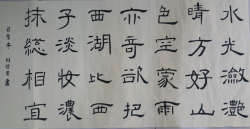 水光瀲灩
晴方好山
亦奇欲把
西湖比西
子淡妝濃
抹總相宜